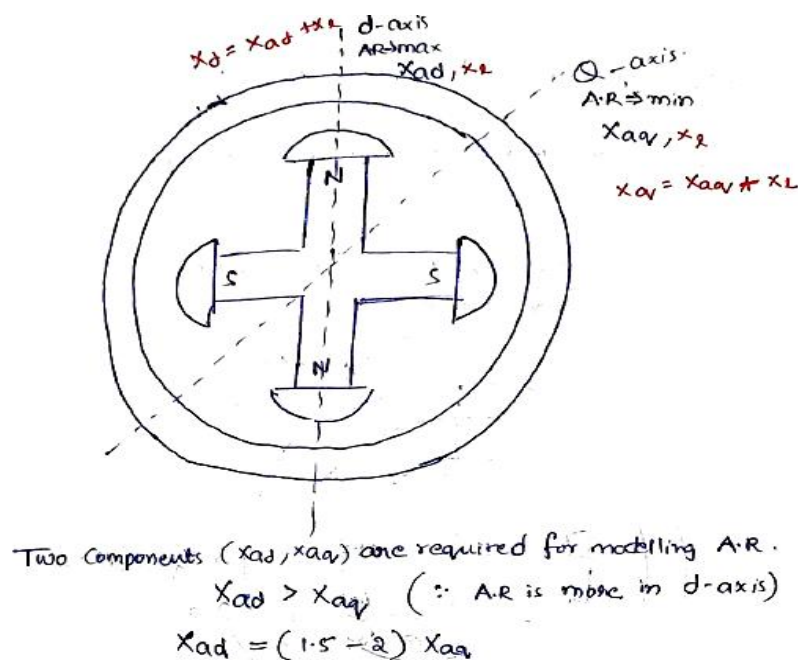 Xd = Xad + Xl
d-axis
AR→max
Xad, Xl
Q-axis.
A.R⇒min
Xaq, Xl
Xq = Xaq + Xl
N
S
S
N
Two Components (Xad, Xaq) are required for modelling A.R.
Xad > Xaq (∵ A.R is more in d-axis)
Xad = (1.5 - 2) Xaq